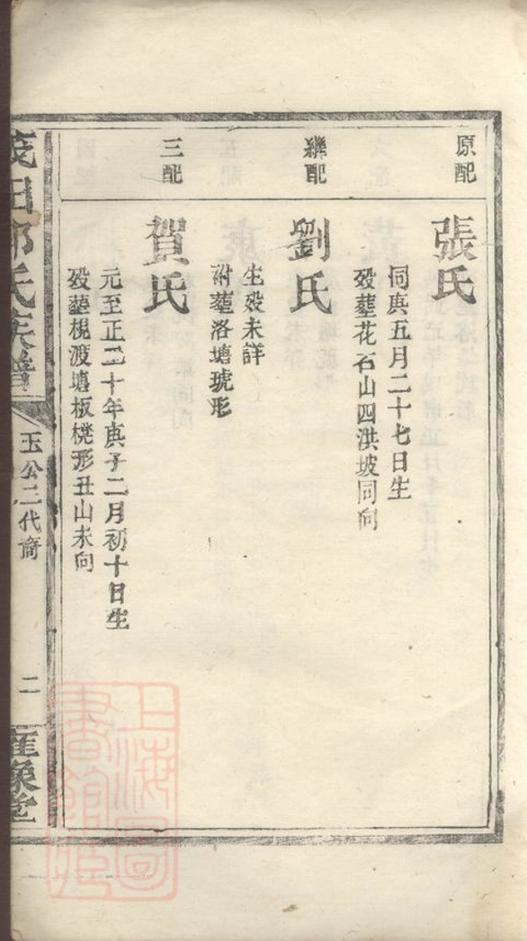 原配
張氏
同庚五月二十七日生
歿塟花石山四洪坡同向
繼配
劉氏
生歿未詳
附塟洛塘琥形
三配
賀氏
元至正二十年庚子二月初十日生
歿塟梘渡塘板櫈形丑山未向
茂田 氏族譜
玉公二代裔
二
上海圖書館藏